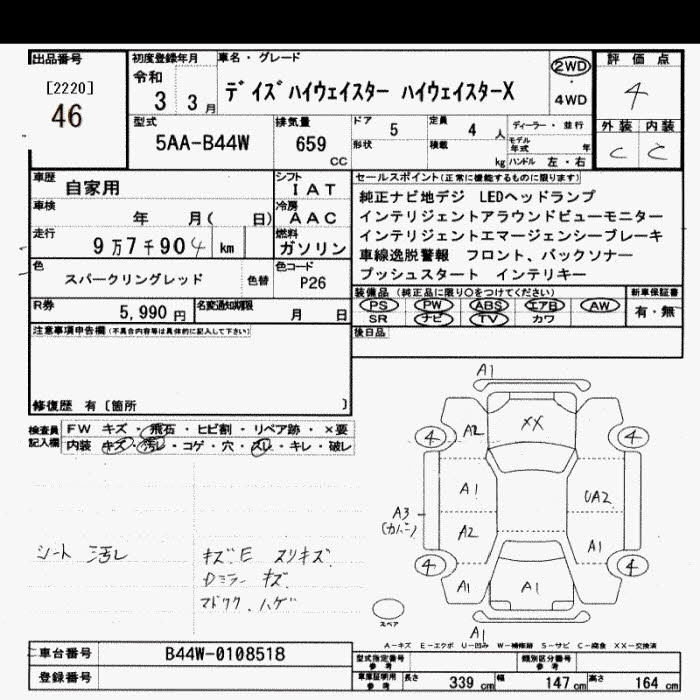 出品番号
[2220]
46
初度登録年月
令和
3 3月
車名・グレード
デイズハイウェイスター ハイウェイスターX
2WD
・
4WD
評価点
4
外装 内装
C C
型式
5AA-B44W
排気量
659
cc
ドア 5
定員 4 人
形状
積載 kg
ディーラー・並行
モデル年式 年
ハンドル 左・右
車歴
自家用
シフト
IAT
車検
年 月( 日)
冷房
AAC
走行
9万7千904 km
燃料
ガソリン
色
スパークリングレッド
色替
色コード
P26
R券
5,990 円
名変通知期限
月 日
セールスポイント(正常に機能するものに限ります)
純正ナビ地デジ LEDヘッドランプ
インテリジェントアラウンドビューモニター
インテリジェントエマージェンシーブレーキ
車線逸脱警報 フロント、バックソナー
プッシュスタート インテリキー
装備品(純正品に限り○をつけてください)
PS PW ABS エアB AW
SR ナビ TV カワ
新車保証書
有・無
後日品
注意事項申告欄(不具合内容等は具体的に記入して下さい)
修復歴 有〔箇所 〕
検査員
記入欄
FW キズ・飛石・ヒビ割・リペア跡・×要
内装 キズ・汚レ・コゲ・穴・スレ・キレ・破レ
シート 汚レ
キズE スリキズ
Dミラー キズ
マドワク ハゲ
A1
A2
XX
4
4
A1
UA2
A3
A2
A1
4
4
A1
A1
A1
スペア
A-キズ E-エクボ U-凹み W-補修跡 S-サビ C-腐食 XX-交換済
車台番号
B44W-0108518
登録番号
型式指定番号
参考
類別区分番号
参考
車庫証明用
参考
長さ 339 cm 幅 147 cm 高さ 164 cm